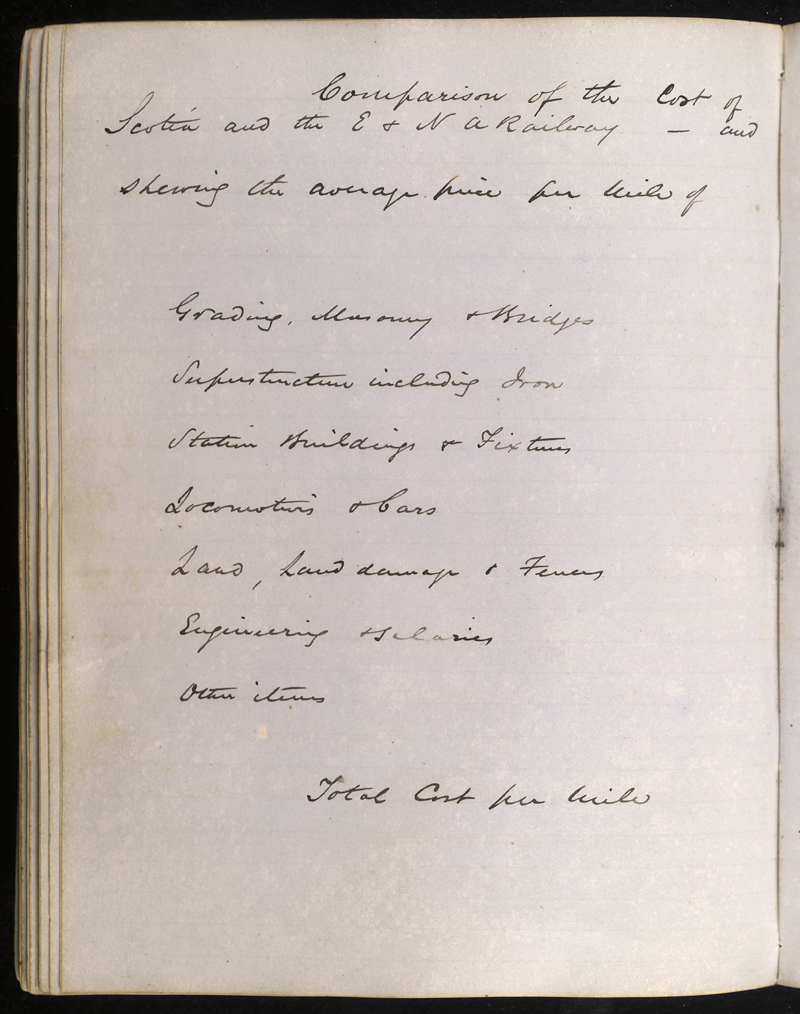 Comparison of the Cost of
Scotia and the E & N A Railway — and
shewing the average price per Mile of
Grading, Masonry & Bridges
Superstructure including Iron
Station Buildings & Fixtures
Locomotives & Cars
Land, Land damage & Fences
Engineering & Salaries
Other items
Total Cost per Mile